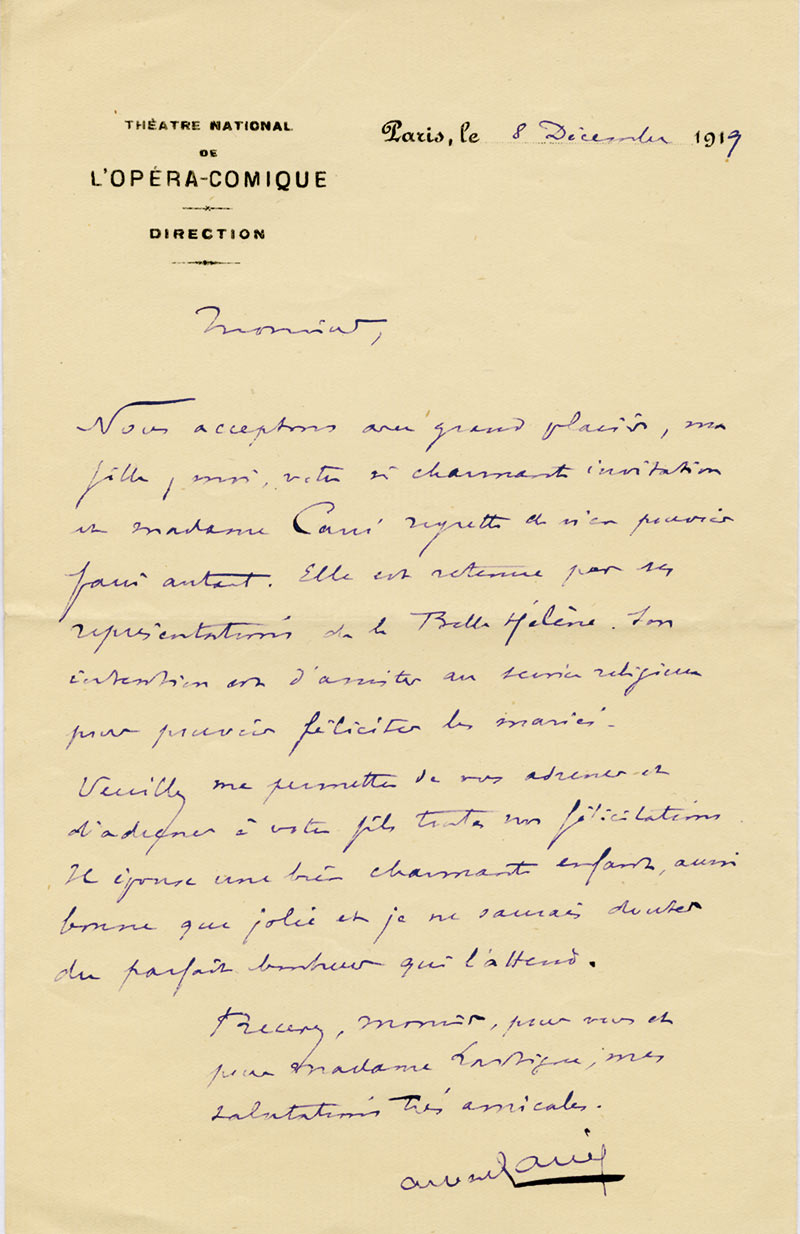 THÉATRE NATIONAL
DE
L'OPÉRA-COMIQUE
DIRECTION
Paris, le 8 Décembre 1919
Monsieur,
Nous acceptons avec grand plaisir, ma
fille, moi, votre si charmante invitation
et madame Carré regrette de n'en pouvoir
faire autant. Elle est retenue par ses
représentations de la Belle Hélène. Son
intention est d'assister au service religieux
pour pouvoir féliciter les mariés.
Veuillez me permettre de vous adresser et
d'adresser à votre fils toutes nos félicitations
Il épouse une bien charmante enfant, aussi
bonne que jolie et je ne saurais douter
du parfait bonheur qui l'attend.
Recevez, monsieur, pour vous et
pour madame Lartigue, mes
salutations très amicales.
Carré